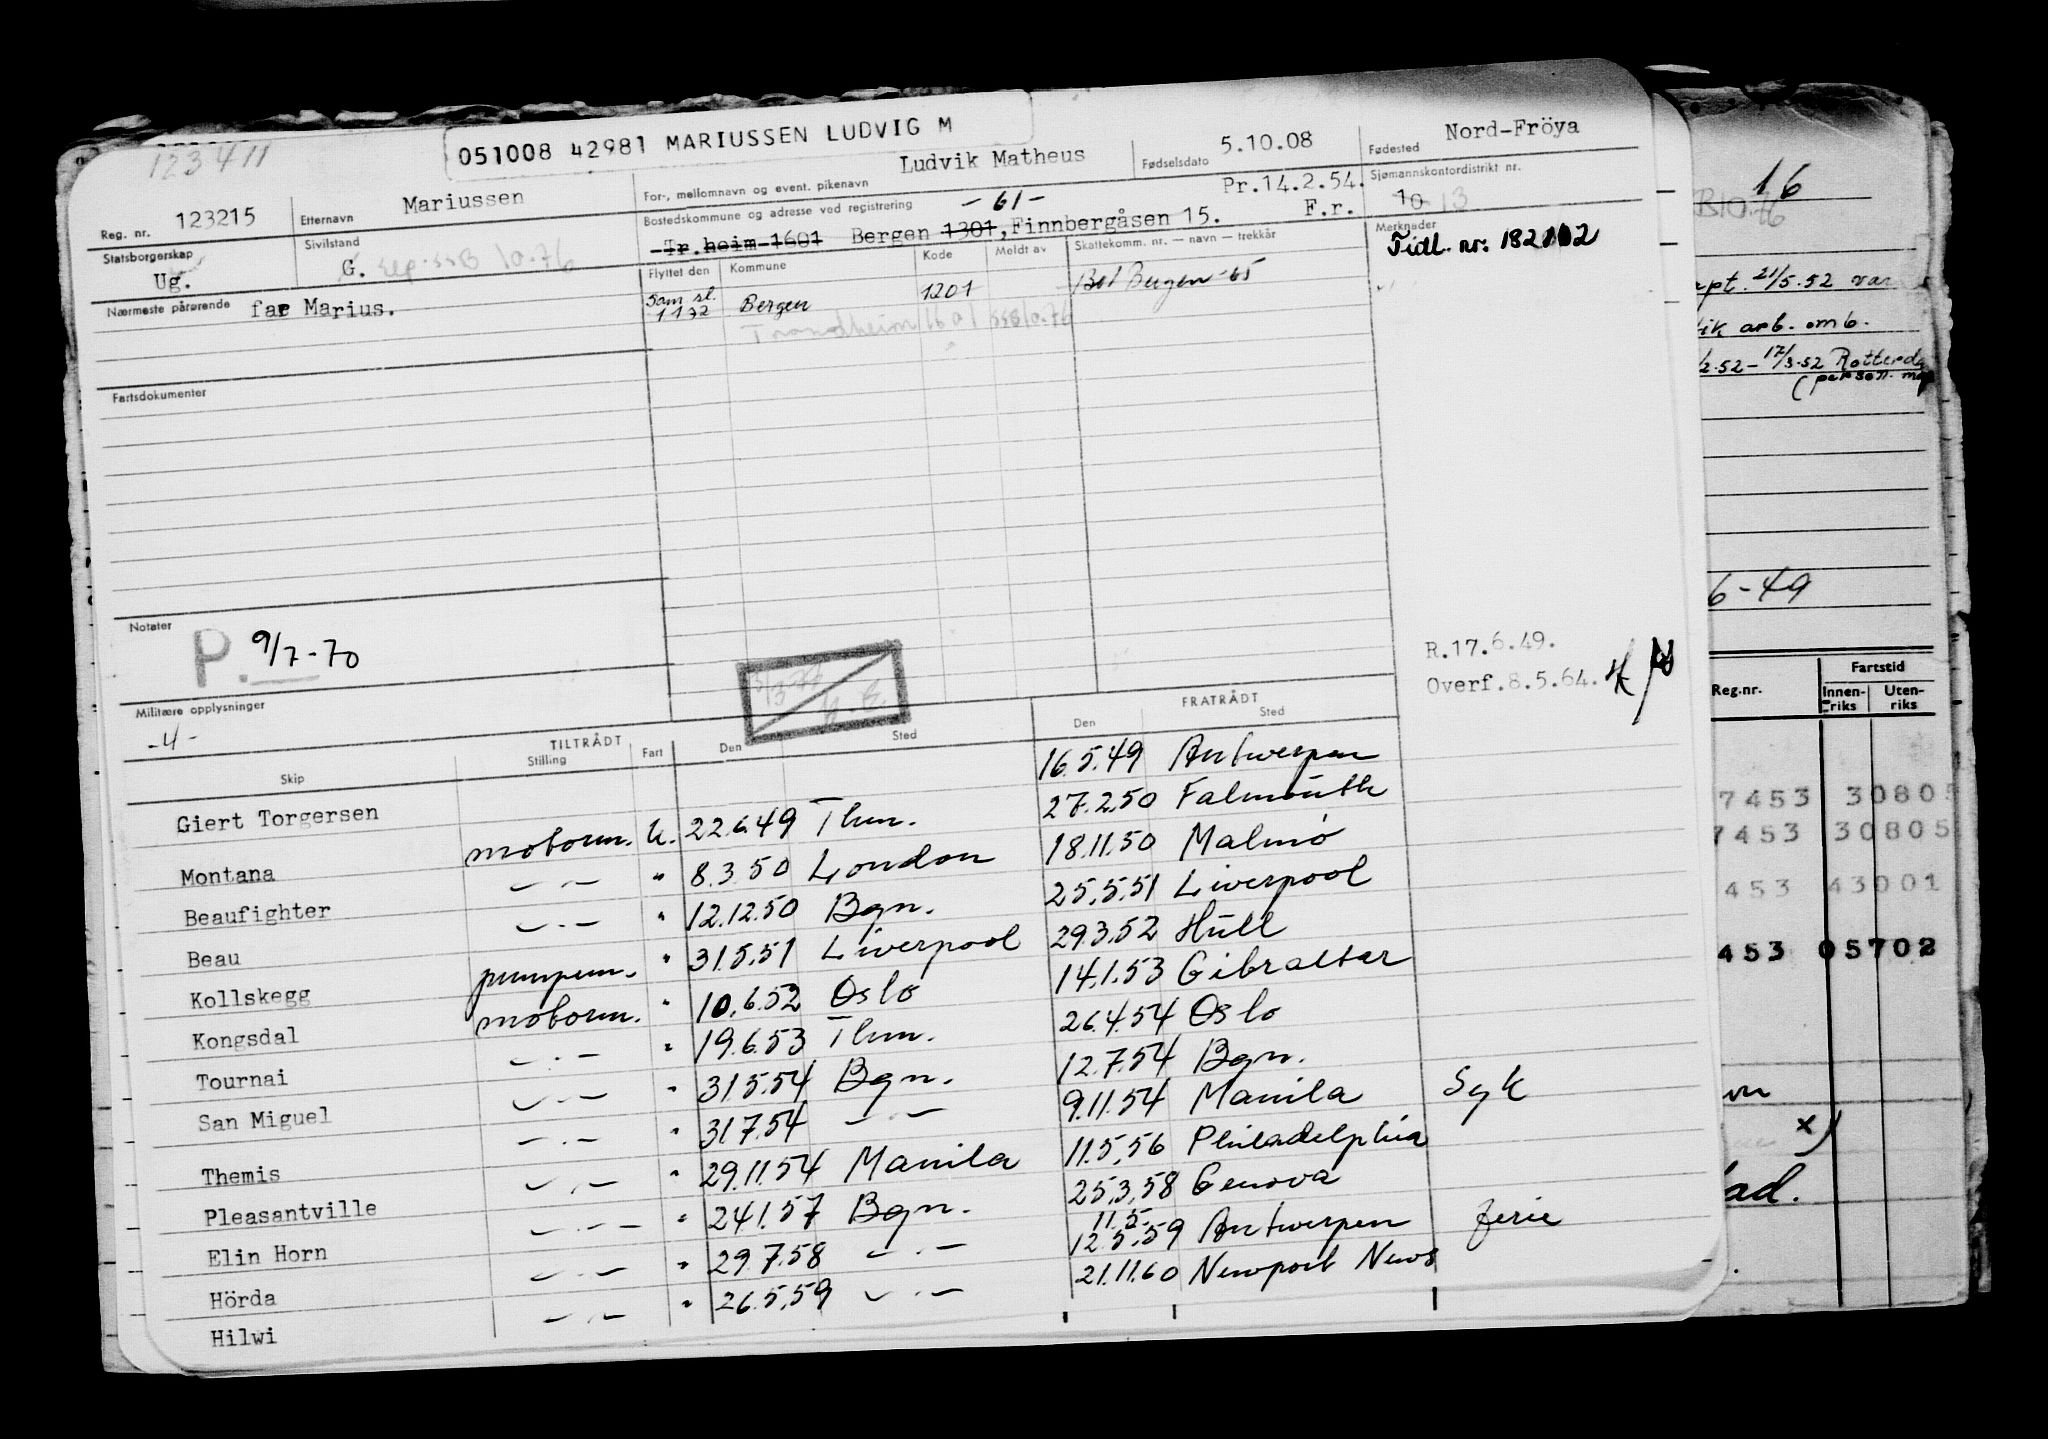 123411
051008 42981 MARIUSSEN LUDVIG M
Reg. nr. 123215 Etternavn Mariussen For-, mellomnavn og event. pikenavn Ludvik Matheus Fødselsdato 5.10.08 Fødested Nord-Fröya
Statsborgerskap Ug. Sivilstand G. Bostedskommune og adresse ved registrering -61- Pr.14.2.54. Sjømannskontordistrikt nr. 10 13
Tr.heim 1601 Bergen 1301, Finnbergåsen 15. F.r. Merknader
Tidl. nr. 182102
Nærmeste pårørende far Marius. Flyttet den Kommune Kode Meldt av Skattekomm. nr. — navn — trekkår
Sam sl. 1132 Bergen 1201 Bergen -65
Trondheim 1601 SSB 10.76
Fartsdokumenter
Notater
P. 9/7-70
R.17.6.49.
Overf.8.5.64.
Militære opplysninger
-4-
TILTRÅDT FRATRÅDT
Skip Stilling Fart Den Sted Den Sted
Giert Torgersen 16.5.49 Antwerpen
Montana motorm. U. 22.6.49 Thm. 27.2.50 Falmouth
Beaufighter — . — " 8.3.50 London 18.11.50 Malmö
Beau — . — " 12.12.50 Bgn. 25.5.51 Liverpool
Kollskegg pumpem. " 31.5.51 Liverpool 29.3.52 Hull
Kongsdal motorm. " 10.6.52 Oslo 14.1.53 Gibraltar
Tournai — . — " 19.6.53 Thm. 26.4.54 Oslo
San Miguel — . — " 31.5.54 Bgn. 12.7.54 Bgn.
Themis — . — " 31.7.54 — . — 9.11.54 Manila Syk
Pleasantville — . — " 29.11.54 Manila 11.5.56 Philadelphia
Elin Horn — . — " 24.1.57 Bgn. 25.3.58 Genova
Hörda — . — " 29.7.58 — . — 11.5. 12.5.59 Antwerpen ferie
Hilwi — . — " 26.5.59 — . — 21.11.60 Newport News
16
B10.76
pt. 21/5.52 var
ik arb. omb.
2.52 - 17/3.52 Rotterda
(person. m
6-49
Reg.nr. Fartstid
Innen-riks Uten-riks
7453 30805
7453 30805
453 43001
453 05702
x)
ad.